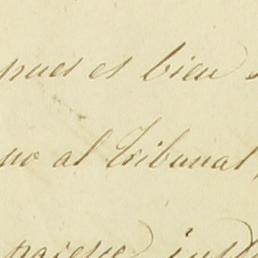 pues es bien
no al Tribunal,
parece just